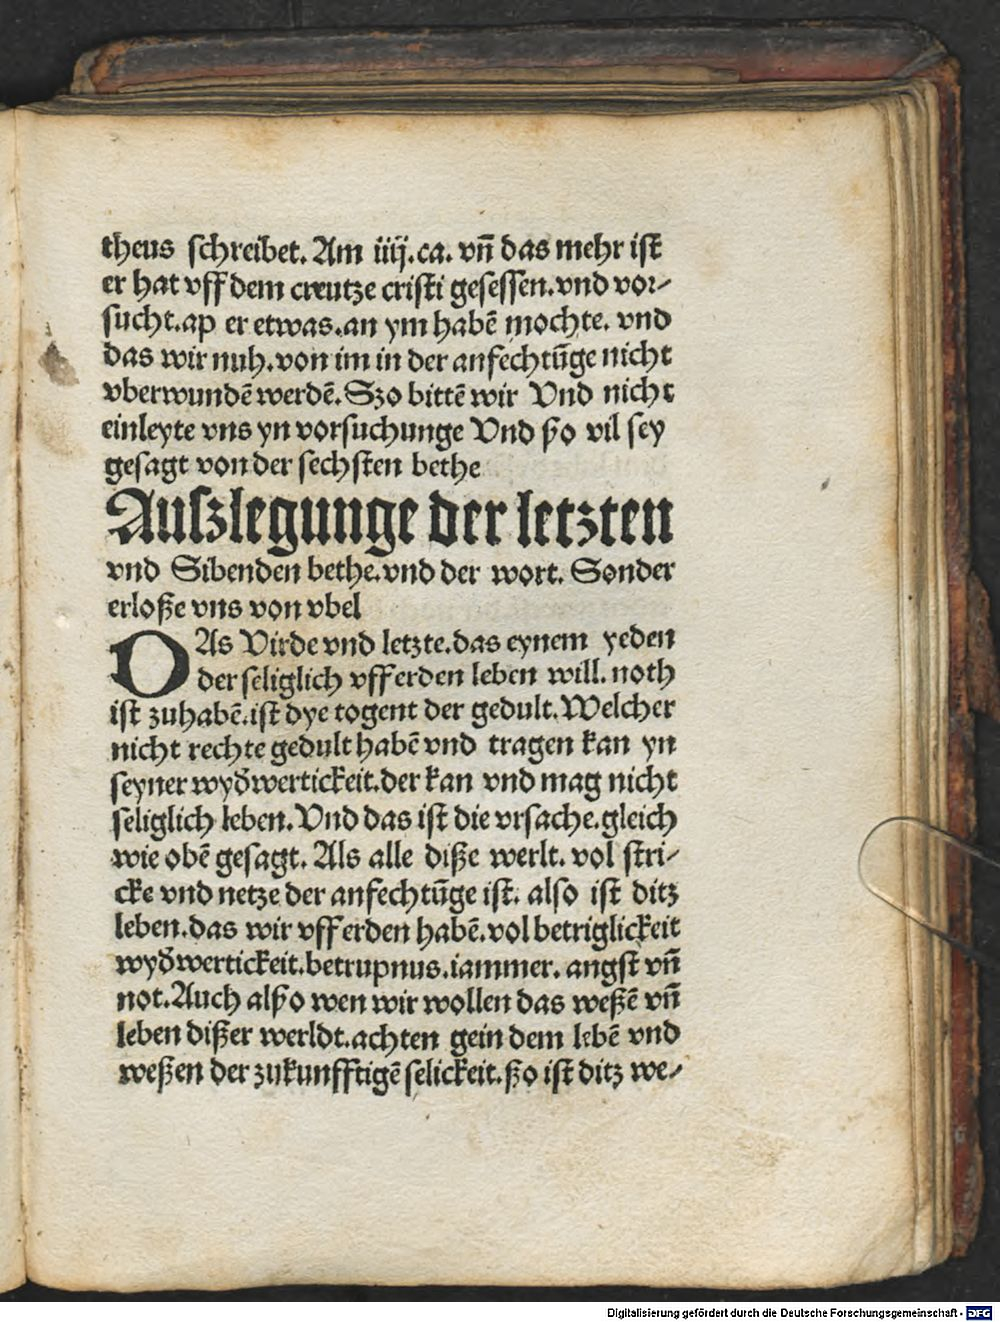 theus schreibet. Am iiij.ca. vn̄ das mehr ist
er hat vff dem creutze cristi gesessen.vnd vor⸗
sucht.ap er etwas.an ym habē mochte. vnd
das wir nuh.von im in der anfechtūge nicht
vberwundē werdē. Szo bittē wir Vnd nicht
einleyte vns yn vorsuchunge Vnd ßo vil sey
gesagt von der sechsten bethe
Auszlegunge der letzten
vnd Sibenden bethe.vnd der wort. Sonder
erloße vns von vbel
DAs Virde vnd letzte.das eynem yeden
der seliglich vff erden leben will. noth
ist zuhabē.ist dye togent der gedult. Welcher
nicht rechte gedult habē vnd tragen kan yn
seyner wyd̄wertickeit.der kan vnd mag nicht
seliglich leben. Vnd das ist die vrsache.gleich
wie obē gesagt. Als alle diße werlt. vol stri⸗
cke vnd netze der anfechtūge ist. also ist ditz
leben.das wir vff erden habē.vol betriglickeit
wyd̄wertickeit.betrupnus.iammer. angst vn̄
not. Auch alßo wen wir wollen das weßē vn̄
leben dißer werldt.achten gein dem lebē vnd
weßen der zukunfftigē selickeit.ßo ist ditz we⸗
Digitalisierung gefördert durch die Deutsche Forschungsgemeinschaft - DFG